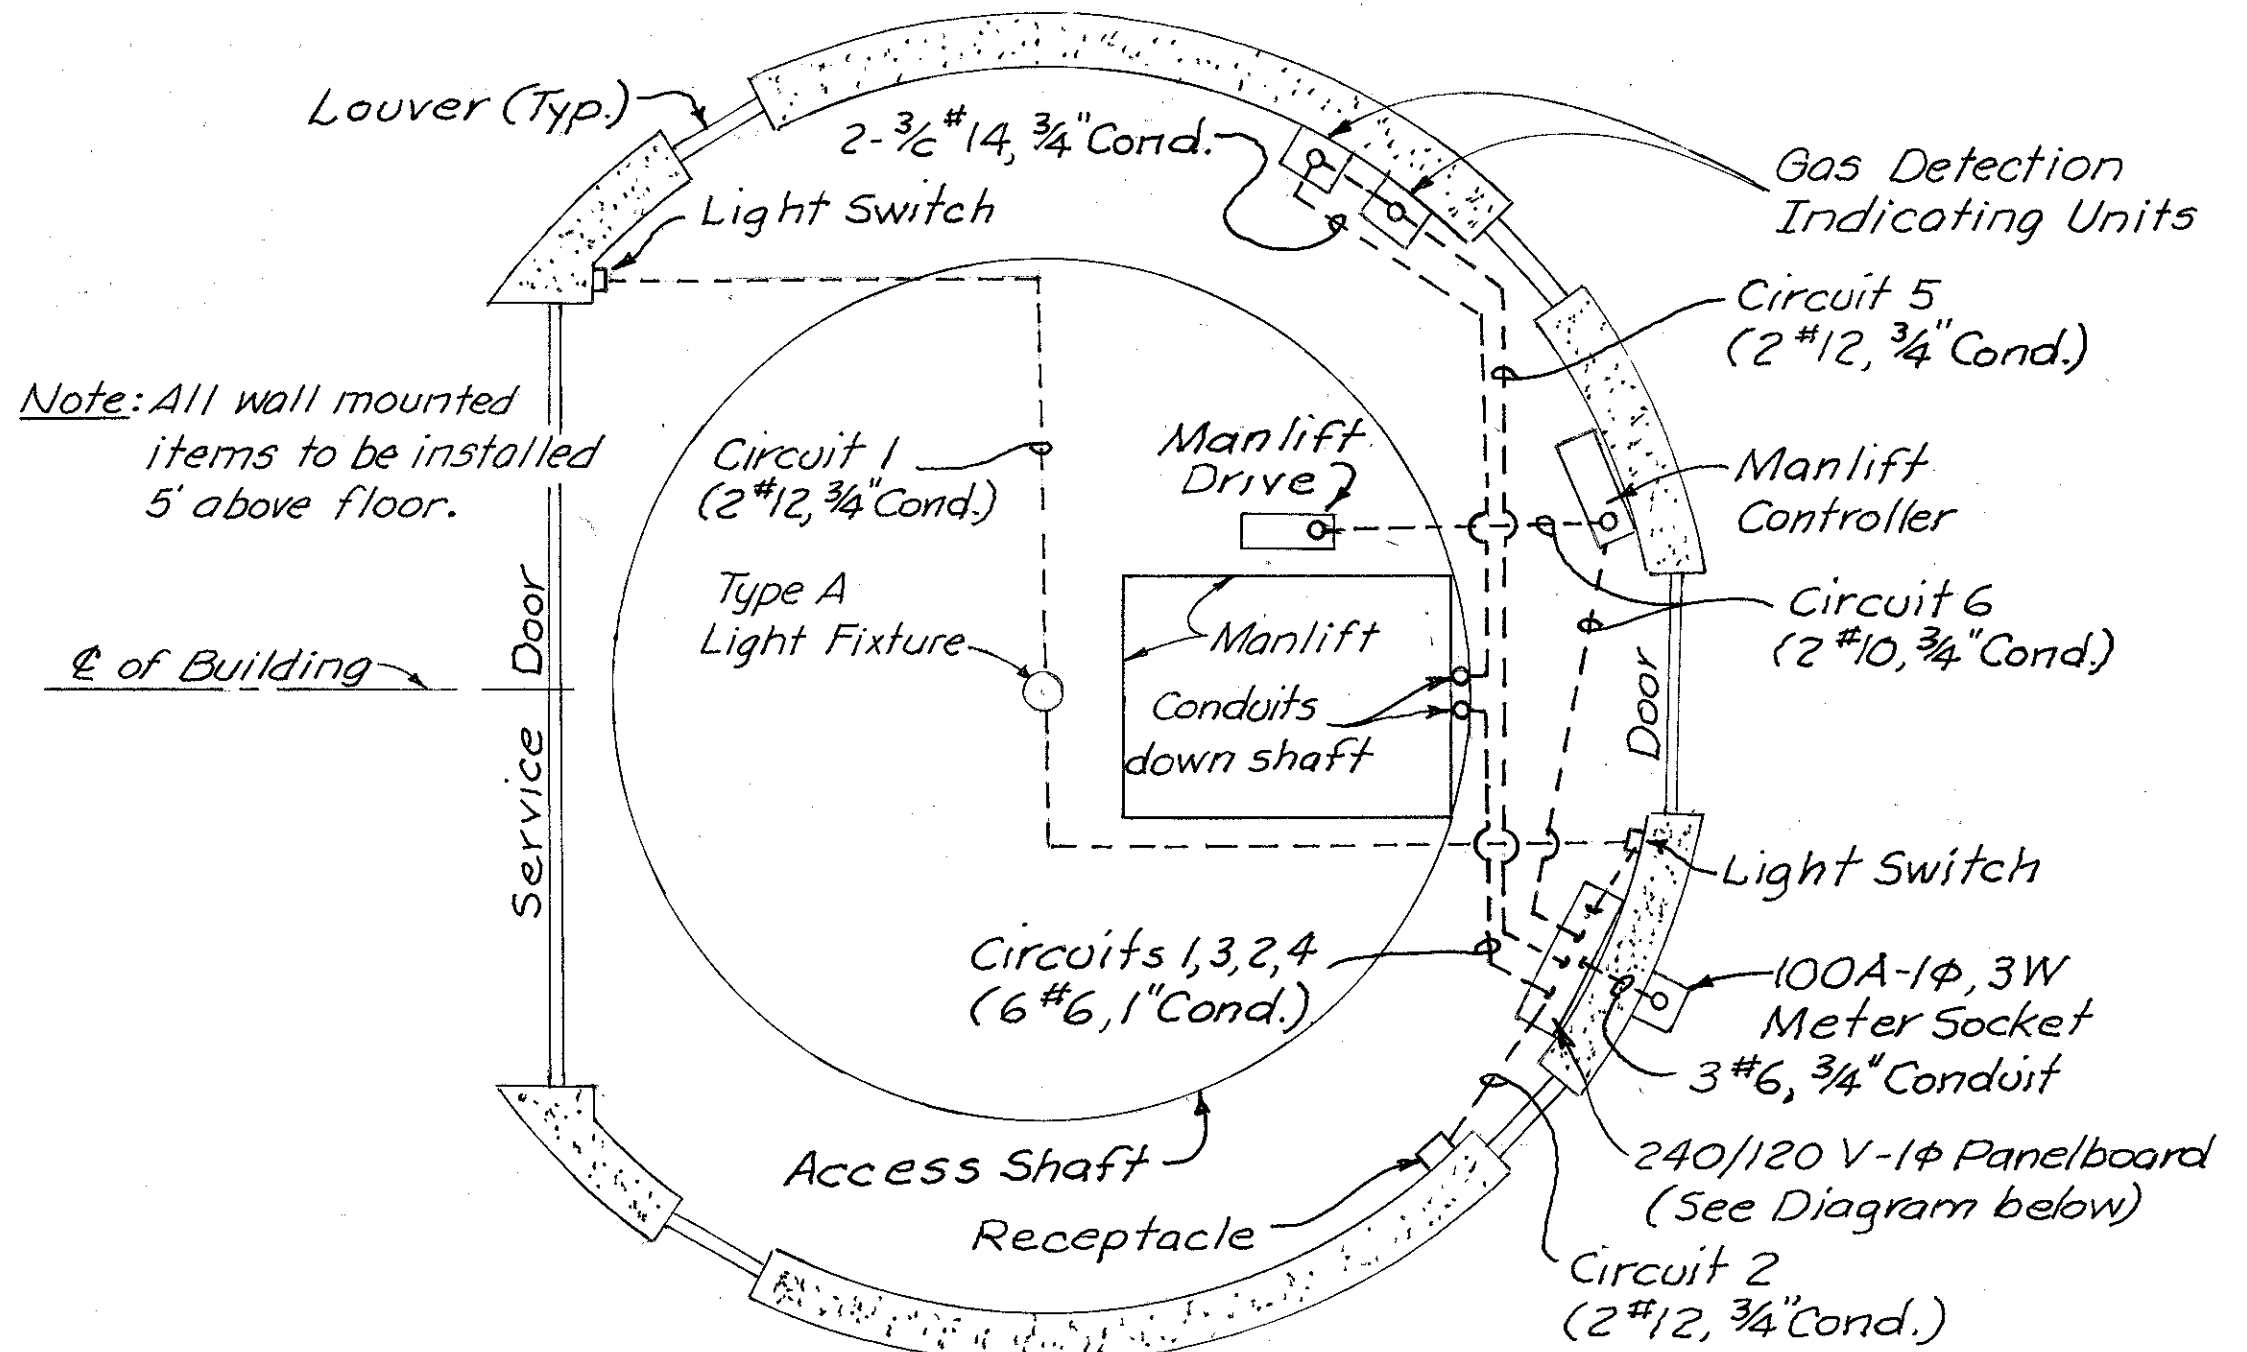 Louver (Typ.)
2-3/c #14, 3/4" Cond.
Light Switch
Gas Detection
Indicating Units
Circuit 5
(2 #12, 3/4" Cond.)
Note: All wall mounted
items to be installed
5' above floor.
Circuit 1
(2 #12, 3/4" Cond.)
Manlift
Drive
Manlift
Controller
Type A
Light Fixture
Manlift
Circuit 6
(2 #10, 3/4" Cond.)
℄ of Building
Service Door
Conduits
down shaft
Door
Light Switch
Circuits 1, 3, 2, 4
(6 #6, 1" Cond.)
100A-1φ, 3W
Meter Socket
3 #6, 3/4" Conduit
Access Shaft
240/120 V-1φ Panelboard
(See Diagram below)
Receptacle
Circuit 2
(2 #12, 3/4" Cond.)